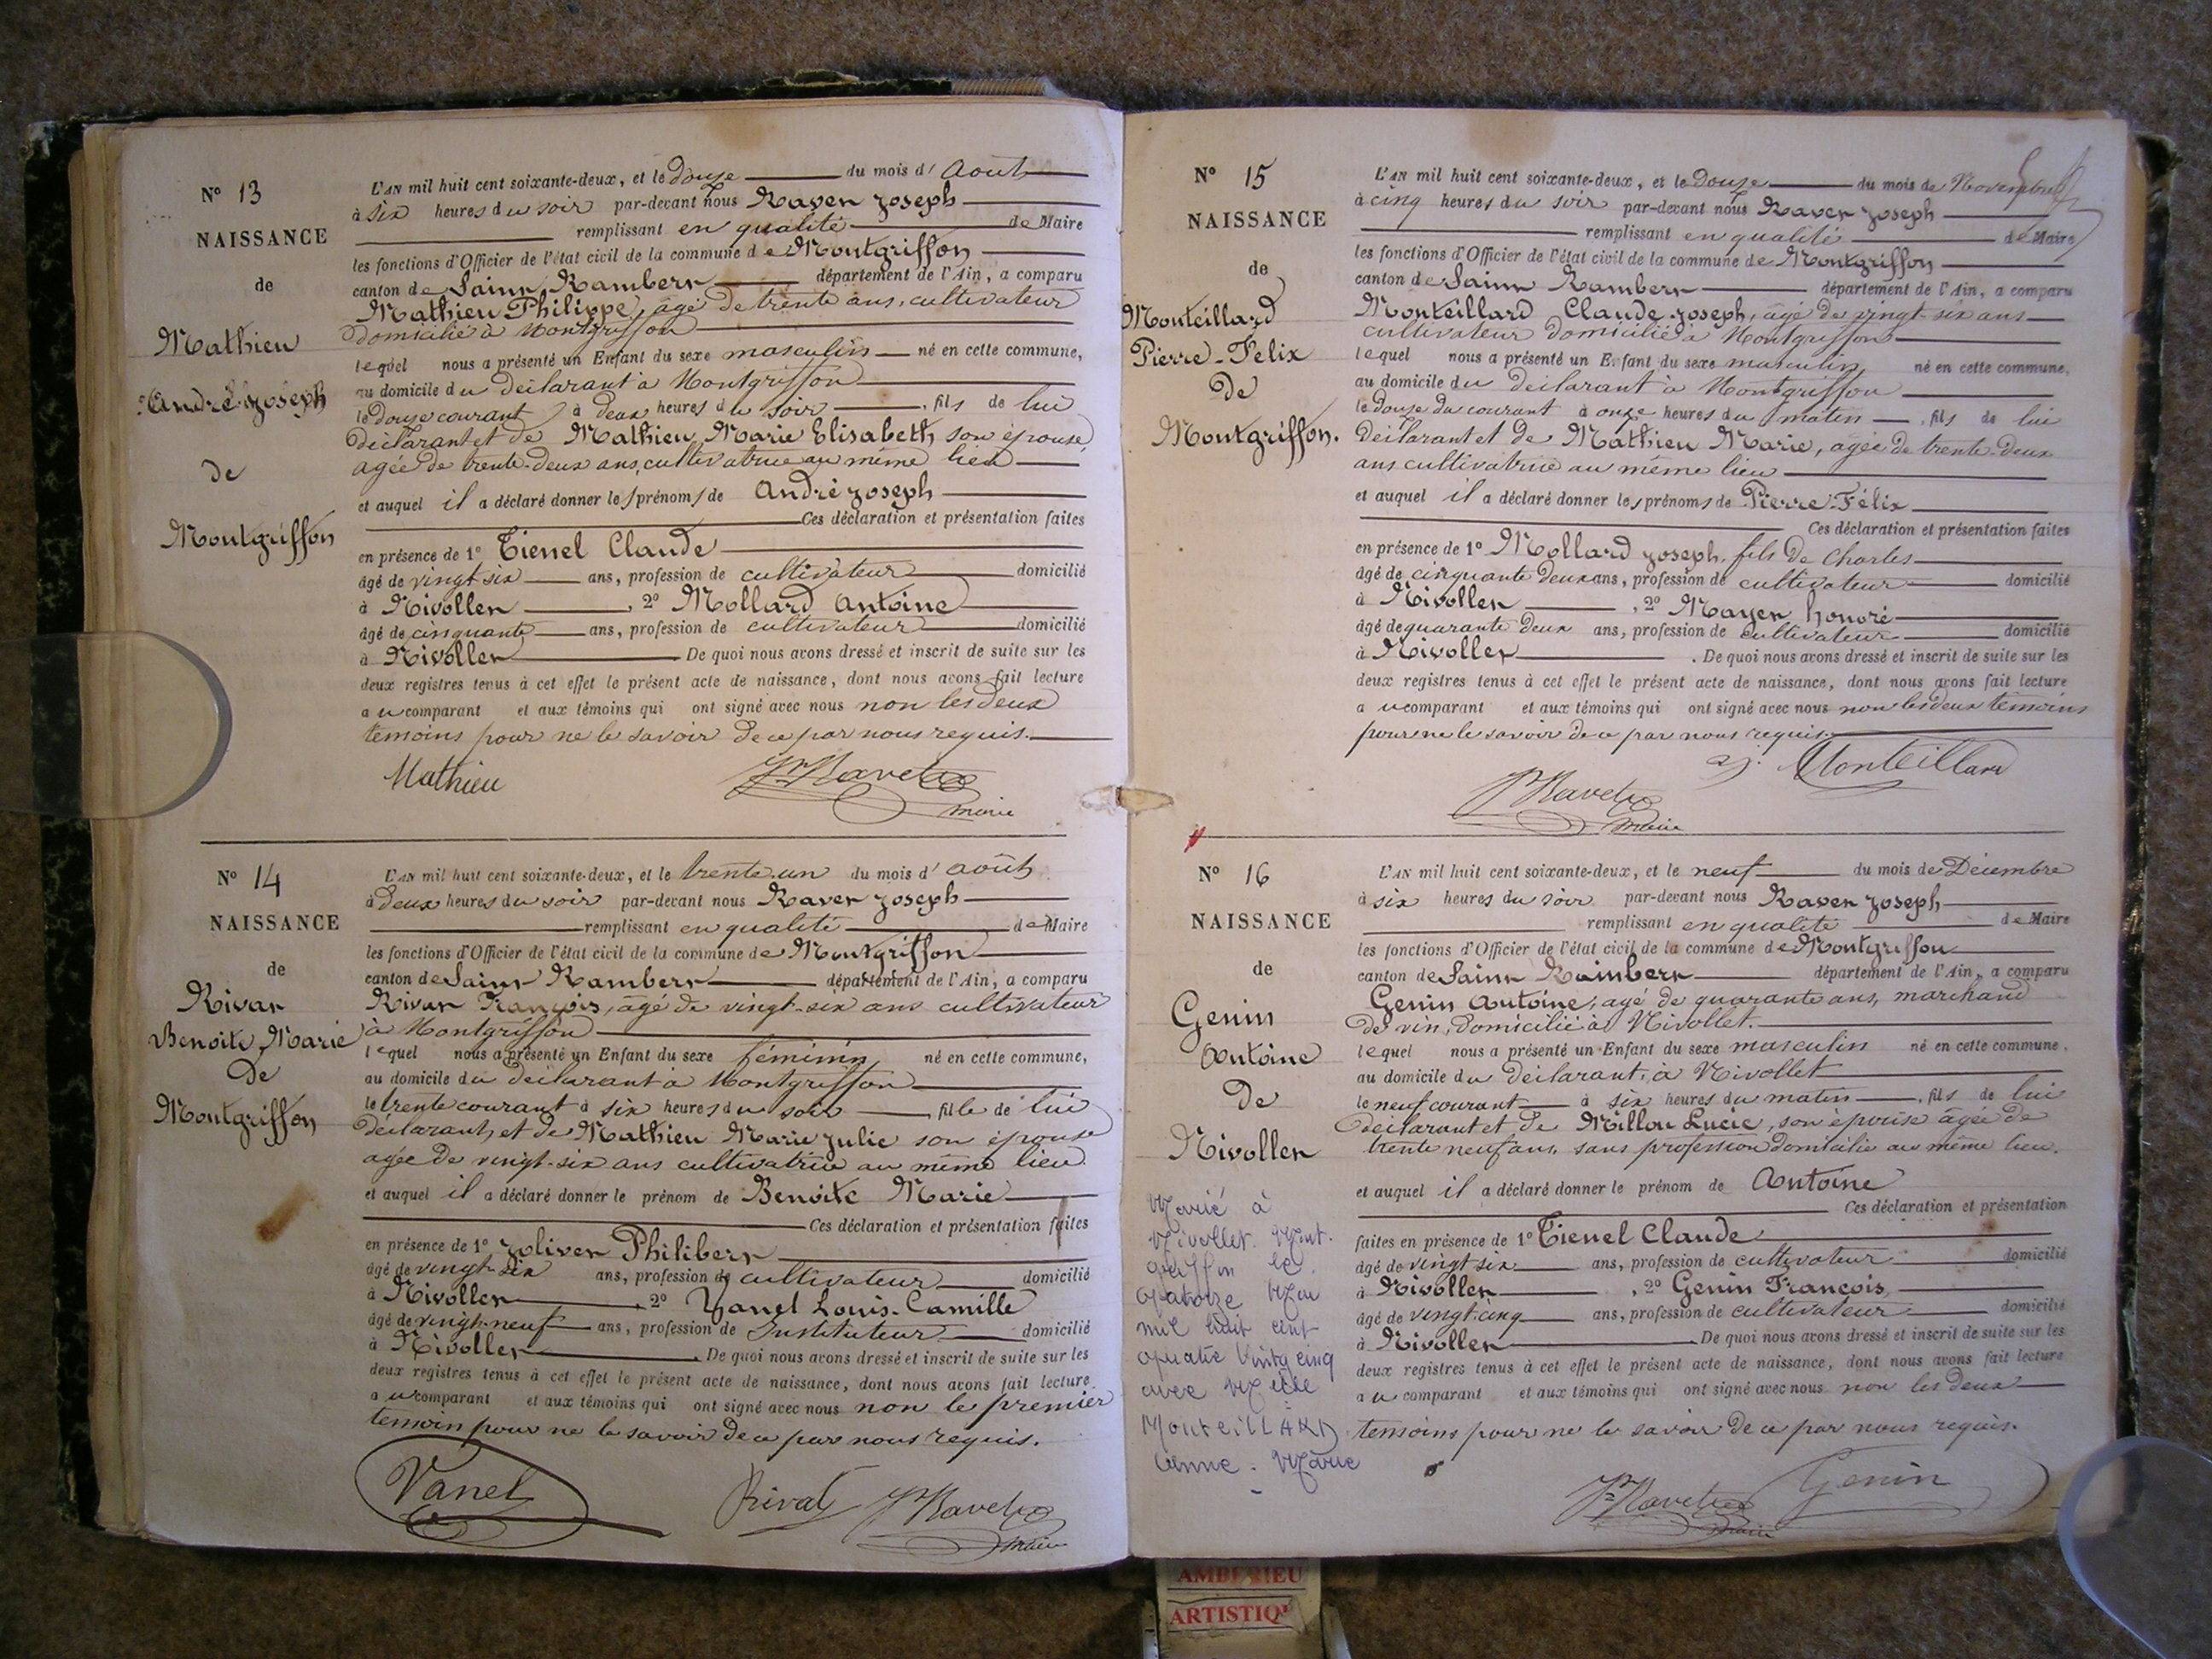 N° 13
NAISSANCE
de
Mathieu
André-Joseph
de
Montgriffon
L'AN mil huit cent soixante-deux, et le douze du mois d'Aout
à six heures du soir par-devant nous Ravet Joseph
remplissant en qualité de Maire
les fonctions d'Officier de l'état civil de la commune de Montgriffon
canton de Saint Rambert département de l'Ain, a comparu
Mathieu Philippe, agé de trente ans, cultivateur
domicilié à Montgriffon
lequel nous a présenté un Enfant du sexe masculin né en cette commune,
au domicile du déclarant à Montgriffon
le douze courant à deux heures du soir, fils de lui
déclarant et de Mathieu Marie Elisabeth son épouse,
agée de trente-deux ans, cultivatrice au même lieu
et auquel il a déclaré donner les prénoms de André Joseph
Ces déclaration et présentation faites
en présence de 1° Tienet Claude
âgé de vingt six ans, profession de cultivateur domicilié
à Nivollet, 2° Mollard Antoine
âgé de cinquante ans, profession de cultivateur domicilié
à Nivollet De quoi nous avons dressé et inscrit de suite sur les
deux registres tenus à cet effet le présent acte de naissance, dont nous avons fait lecture
au comparant et aux témoins qui ont signé avec nous non les deux
témoins pour ne le savoir de ce par nous requis.
Mathieu Jh Ravet
maire
N° 14
NAISSANCE
de
Rivat
Benoite Marie
de
Montgriffon
L'AN mil huit cent soixante-deux, et le trente-un du mois d'août
à deux heures du soir par-devant nous Ravet Joseph
remplissant en qualité de Maire
les fonctions d'Officier de l'état civil de la commune de Montgriffon
canton de Saint Rambert département de l'Ain, a comparu
Rivat François, âgé de vingt-six ans cultivateur
à Montgriffon
lequel nous a présenté un Enfant du sexe féminin né en cette commune,
au domicile du déclarant à Montgriffon
le trente courant à six heures du soir fille de lui
déclarant, et de Mathieu Marie Julie son épouse
agée de vingt-six ans cultivatrice au même lieu
et auquel il a déclaré donner le prénom de Benoite Marie
Ces déclaration et présentation faites
en présence de 1° Jolivet Philibert
âgé de vingt-six ans, profession de cultivateur domicilié
à Nivollet, 2° Vanel Louis-Camille
âgé de vingt-neuf ans, profession de Instituteur domicilié
à Nivollet. De quoi nous avons dressé et inscrit de suite sur les
deux registres tenus à cet effet le présent acte de naissance, dont nous avons fait lecture
au comparant et aux témoins qui ont signé avec nous non le premier
témoin pour ne le savoir de ce par nous requis.
Vanel Rivat Jh Ravet
maire
N° 15
NAISSANCE
de
Monteillard
Pierre-Felix
de
Montgriffon.
L'AN mil huit cent soixante-deux, et le douze du mois de Novembre
à cinq heures du soir par-devant nous Ravet Joseph
remplissant en qualité de Maire
les fonctions d'Officier de l'état civil de la commune de Montgriffon
canton de Saint Rambert département de l'Ain, a comparu
Monteillard Claude-Joseph, âgé de vingt-six ans
cultivateur domicilié à Montgriffon
lequel nous a présenté un Enfant du sexe masculin né en cette commune,
au domicile du déclarant à Montgriffon
le douze du courant à onze heures du matin, fils de lui
déclarant et de Mathieu Marie, agée de trente-deux
ans cultivatrice au même lieu
et auquel il a déclaré donner les prénoms de Pierre-Félix
Ces déclaration et présentation faites
en présence de 1° Mollard Joseph, fils de Charles
âgé de cinquante deux ans, profession de cultivateur domicilié
à Nivollet, 2° Mayen honoré
âgé de quarante deux ans, profession de cultivateur domicilié
à Nivollet. De quoi nous avons dressé et inscrit de suite sur les
deux registres tenus à cet effet le présent acte de naissance, dont nous avons fait lecture
au comparant et aux témoins qui ont signé avec nous non les deux témoins
pour ne le savoir de ce par nous requis.
Monteillard
Jh Ravet
maire
N° 16
NAISSANCE
de
Genin
Antoine
de
Nivollet
Marié à
Nivollet-Mont-
griffon le
quatorze Mai
mil huit cent
quatre vingt cinq
avec Melle
MonteiLLARD
Marie
L'AN mil huit cent soixante-deux, et le neuf du mois de Décembre
à six heures du soir par-devant nous Ravet Joseph
remplissant en qualité de Maire
les fonctions d'Officier de l'état civil de la commune de Montgriffon
canton de Saint Rambert département de l'Ain, a comparu
Genin Antoine, agé de quarante ans, marchand
de vin, domicilié à Nivollet.
lequel nous a présenté un Enfant du sexe masculin né en cette commune,
au domicile du déclarant, à Nivollet
le neuf courant à six heures du matin, fils de lui
déclarant et de Millou Lucie, son épouse âgée de
trente neuf ans, sans profession domicilié au même lieu.
et auquel il a déclaré donner le prénom de Antoine
Ces déclaration et présentation
faites en présence de 1° Tienet Claude
âgé de vingt six ans, profession de cultivateur domicilié
à Nivollet, 2° Genin François
âgé de vingt-cinq ans, profession de cultivateur domicilié
à Nivollet. De quoi nous avons dressé et inscrit de suite sur les
deux registres tenus à cet effet le présent acte de naissance, dont nous avons fait lecture
au comparant et aux témoins qui ont signé avec nous non les deux
témoins pour ne le savoir de ce par nous requis.
Jh Ravet Genin
maire
AMBERIEU
ARTISTIQU